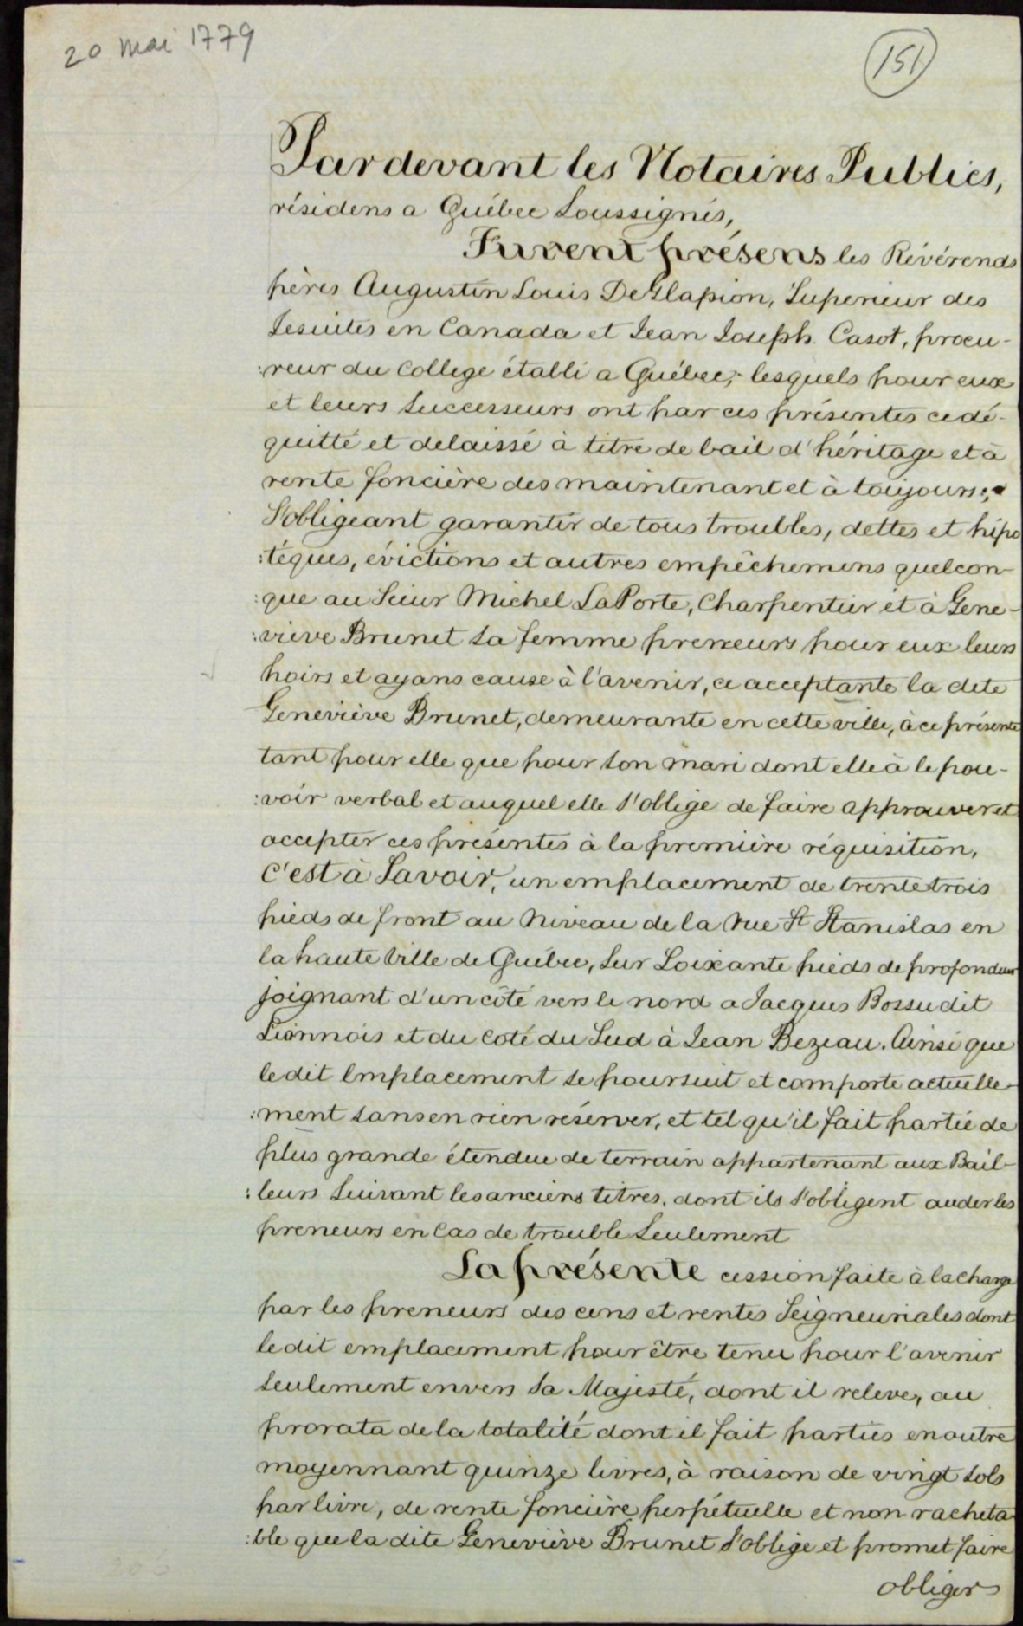 20 mai 1779
151
Pardevant les Notaires Publics,
résidens a Québec Soussignés,
Furent présens les Révérends
pères Augustin Louis DeGlapion, Superieur des
Jesuites en Canada et Jean Joseph Casot, procu-
:reur du College établi a Québec, lesquels pour eux
et leurs Successeurs ont par ces présentes cedé-
quitté et delaissé à titre de bail d'héritage et à
rente foncière des maintenant et à toujours,
S'obligeant garantir de tous troubles, dettes et hipo
:téques, évictions et autres empêchemens quelcon-
:que au Sieur Michel LaPorte, Charpentier et à Gene-
:vieve Brunet sa femme preneurs pour eux leurs
hoirs et ayans cause à l'avenir, ce acceptante la dite
Geneviève Brunet, demeurante en cette ville, à ce présente
tant pour elle que pour son mari dont elle à le pou-
:voir verbal et auquel elle s'oblige de faire approuver et
accepter ces présentes à la première réquisition,
C'est à Savoir, un emplacement de trente trois
pieds de front au Niveau de la Rue St Stanislas en
la haute Ville de Québec, Sur Soixante pieds de profondeur
joignant d'un côté vers le nord a Jacques Bossu dit
Lionnois et du coté du Sud à Jean Bezeau. Ainsi que
ledit Emplacement se poursuit et comporte actuelle-
:ment sans en rien réserver, et tel qu'il fait partie de
plus grande étendue de terrain appartenant aux Bail-
:leurs Suivant les anciens titres, dont ils s'obligent aider les
preneurs en Cas de trouble Seulement
La présente cession faite à la charge
par les preneurs des cens et rentes Seigneuriales dont
ledit emplacement pour être tenu pour l'avenir
seulement envers Sa Majesté, dont il releve, au
prorata de la totalité dont il fait parties en outre
moyennant quinze livres, à raison de vingt sols
par livre, de rente foncière perpétuelle et non racheta
:ble que la dite Geneviève Brunet s'oblige et promet faire
obliger